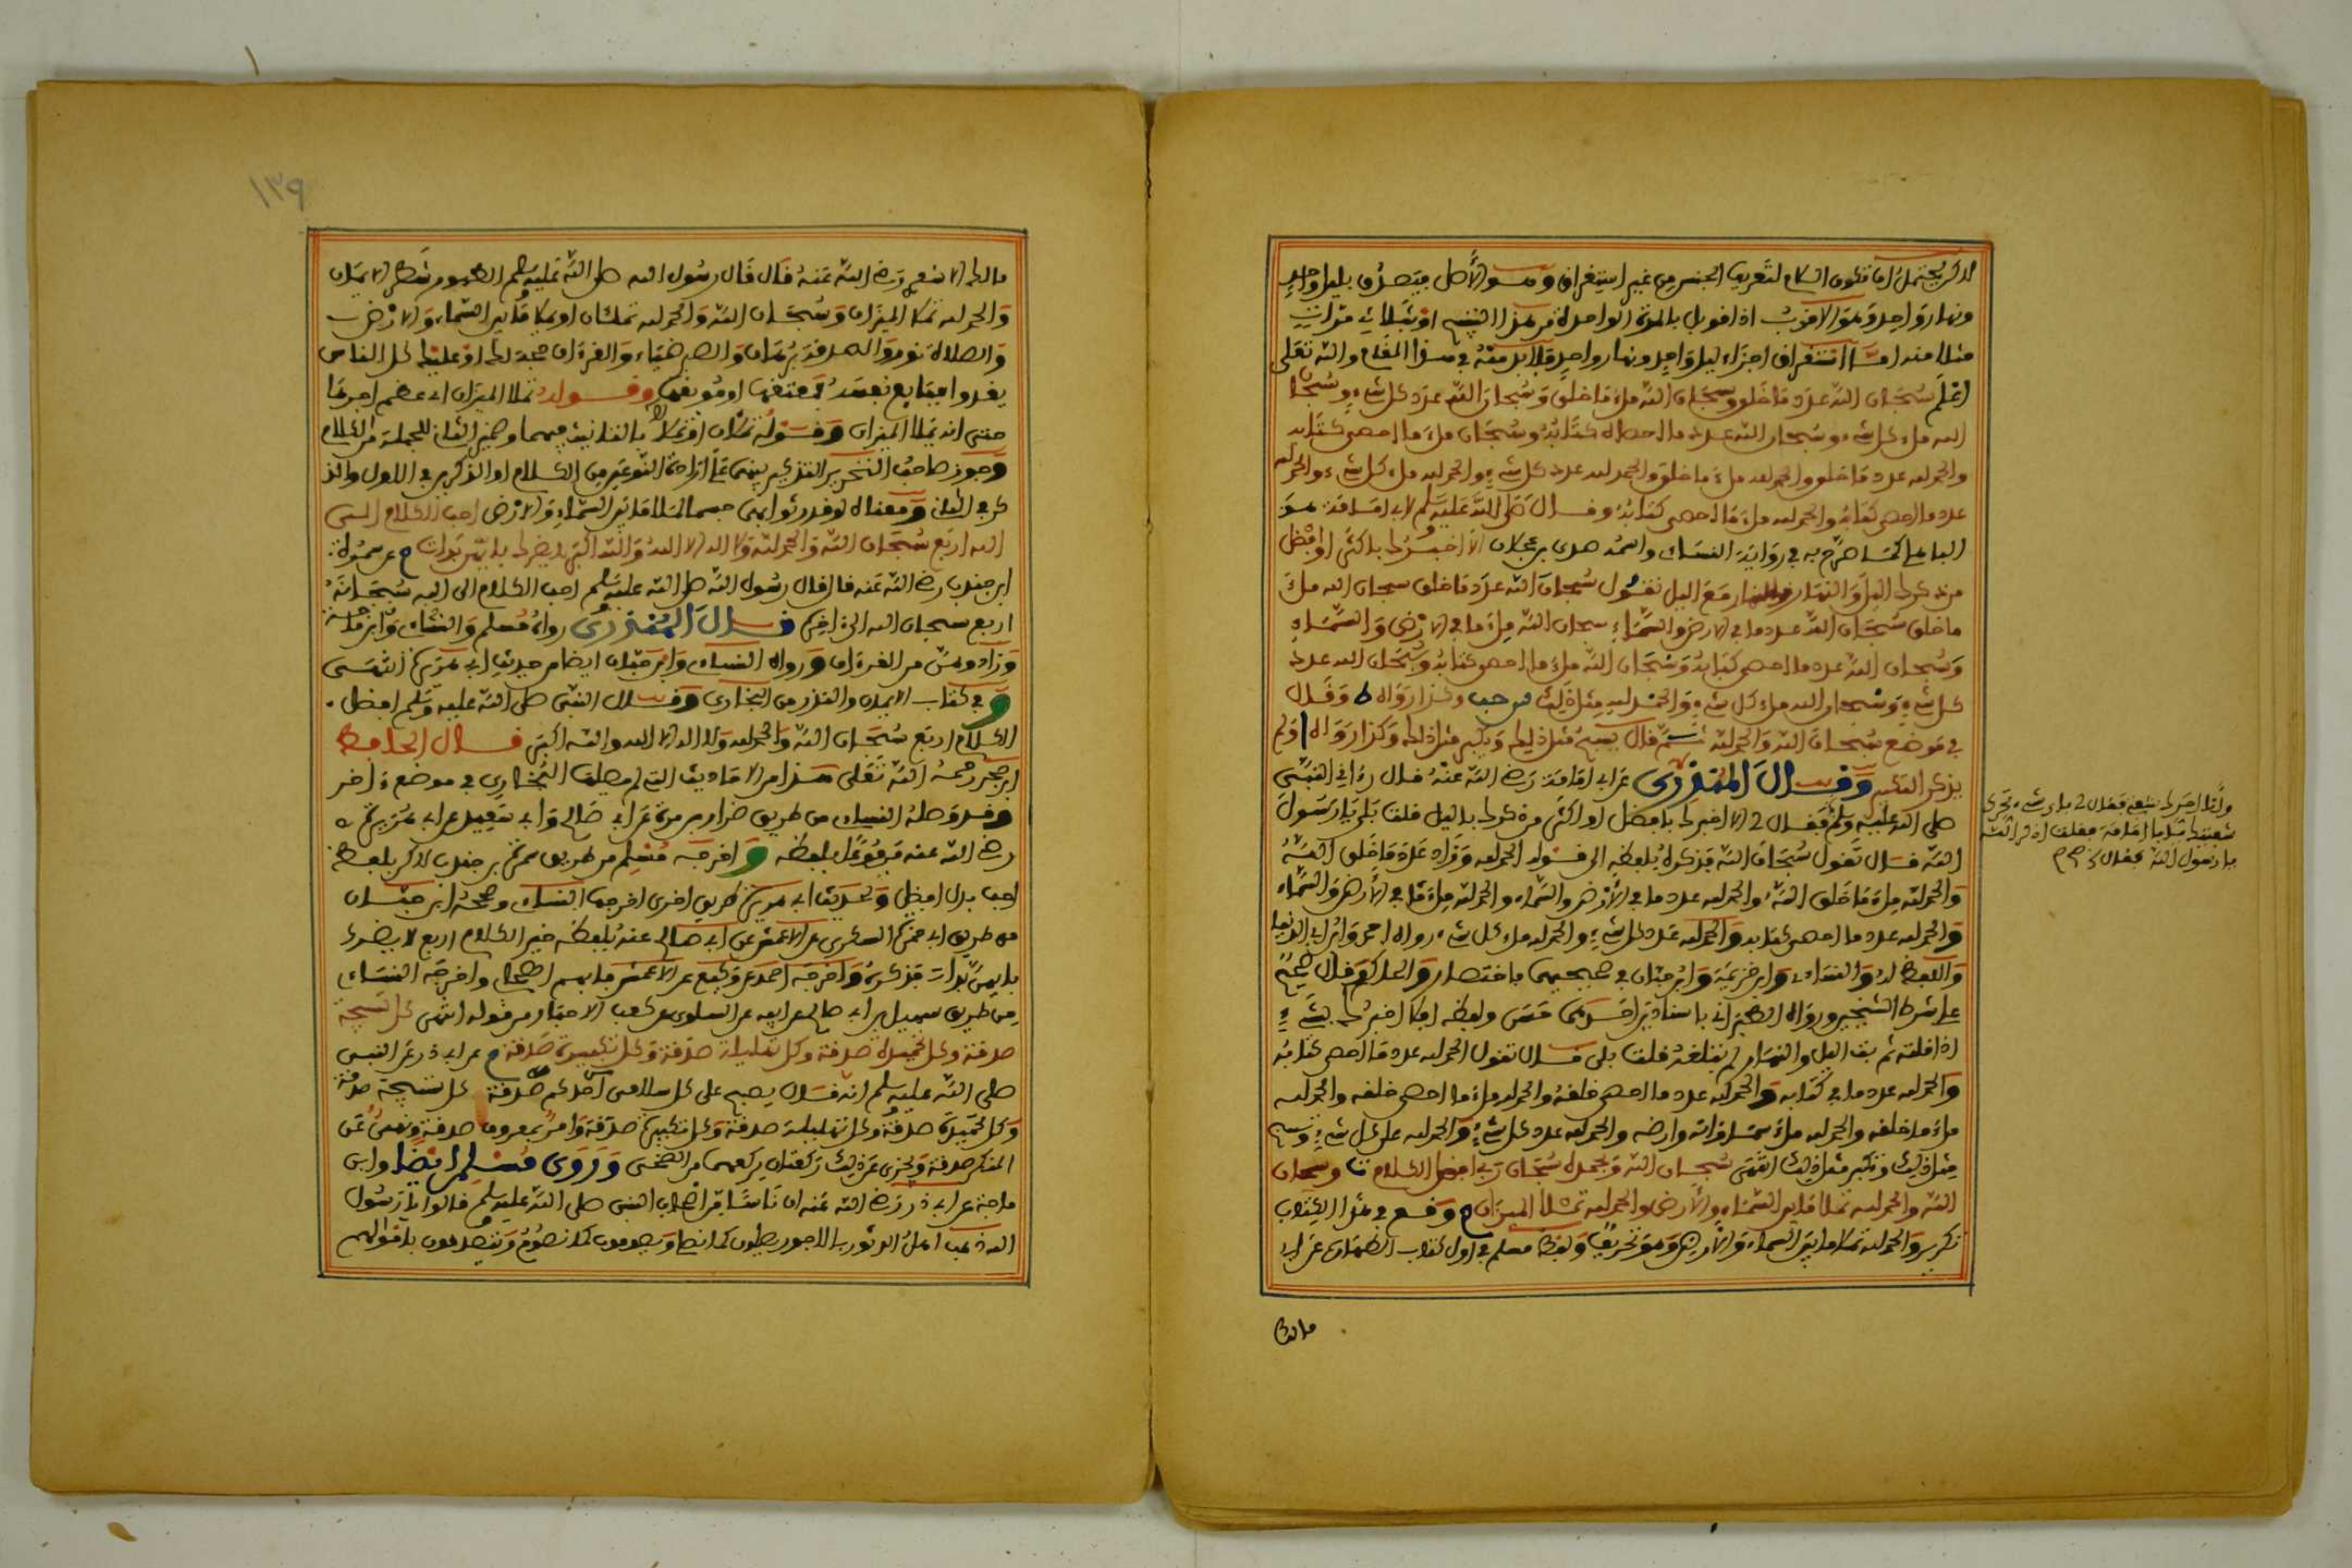 لاكن يحتمل ان تكون اللام لتعريف الجنس من غير استغراق وهو الأصل فيصدق بليل واحد
ونهار واحد وهو الاقرب اذا قوبل بالمرة الواحدة من هذا التسبيح او بثلاث مرات
مثلا منه اما استغراق اجزاء ليل واحد ونهار واحد فلا بد منه في هذا المقام والله تعلى
اعلم سبحان الله عدد ما خلق وسبحان الله ملء ما خلق وسبحان الله عدد كل شيء وسبحان
الله ملء كل شيء وسبحان الله عدد ما احصاه كتابه وسبحان ملء ما احصى كتابه
والحمد لله عدد ما خلق والحمد لله ملء ما خلق والحمد لله عدد كل شيء والحمد لله ملء كل شيء والحمد لله
عدد ما احصى كتابه والحمد لله ملء ما احصى كتابه وقال صلى الله عليه وسلم لابي امامة هو
الباهلي كما صرح به في رواية النساءي واسمه صدي بن عجلان الا اخبرك باكثر او افضل
من ذكرك الليل والنهار والنهار مع الليل تقول سبحان الله عدد ما خلق سبحان الله ملء
ما خلق سبحان الله عدد ما في الارض والسماء سبحان الله ملء ما في الارض والسماء
وسبحان الله عدد ما احصى كتابه وسبحان الله ملء ما احصى كتابه وسبحان الله عدد
كل شيء وسبحان الله ملء كل شيء والحمد لله مثل ذلك س حب وكذا رواه ط وقال
في موضع سبحان الله والحمد لله ثم قال يسبح مثل ذلك ويكبر مثل ذلك وكذا رواه ا ولم
يذكر التكبير وقال المنذري عن ابي امامة رضي الله عنه قال رءاني النبي
صلى الله عليه وسلم فقال لي الا اخبرك بافضل او اكثر من ذكرك بالليل قلت بلى يا رسول
الله قال تقول سبحان الله فذكره بلفظه الى قوله الحمد لله وزاد عدد ما خلق الله
والحمد لله ملء ما خلق الله والحمد لله عدد ما في الأرض والسماء والحمد لله ملء ما في الأرض والسماء
والحمد لله عدد ما احصى كتابه والحمد لله عدد كل شيء والحمد لله ملء كل شيء رواه احمد وابن ابي الدنيا
واللفظ له والنساءي وابن خزيمة وابن حبان في صحيحيهما باختصار والحاكم وقال صحيح
على شرط الشيخين ورواه الطبراني باسنادين احدهما حسن ولفظه افلا اخبرك بشيء
اذا قلته ثم بت الليل والنهار لم تبلغه قلت بلى قال تقول الحمد لله عدد ما احصى كتابه
والحمد لله عدد ما في كتابه والحمد لله عدد ما احصى خلقه والحمد لله ملء ما احصى خلقه والحمد لله
ملء ما خلقه والحمد لله ملء سماواته وارضه والحمد لله عدد كل شيء والحمد لله على كل شيء وتسبح
مثل ذلك وتكبر مثل ذلك انتهى سبحان الله وبحمده سبحان ربي افضل الكلام ت وسبحان
الله والحمد لله تملا ما بين السماء والأرض والحمد لله تملا الميزان م وقع في هذا الكتاب
تكرير والحمد لله تملا ما بين السماء والأرض وهو تحريف ولفظ مسلم في اول كتاب الطهارة عن ابي
مالك
وأنا احرك شفتي فقال لي باي شيء تحرك
شفتيك يا ابا امامة فقلت اذكر الله
يا رسول الله فقال
١٣٩
مالك الاشعري رضي الله عنه قال قال رسول الله صلى الله عليه وسلم الطهور شطر الايمان
والحمد لله تملا الميزان وسبحان الله والحمد لله تملئان او تملا ما بين السماء والارض
والصلاة نور والصدقة برهان والصبر ضياء والقرءان حجة لك او عليك كل الناس
يغدوا فبايع نفسه فمعتقها او موبقها وقوله تملا الميزان اي عظم اجرها
حتى انه يملا الميزان وقوله تملان او تملا بالفوقانيه فيهما وضمير الثاني للجملة من الكلام
وجوز صاحب التحرير التذكير فيهما على ارادة النوعين من الكلام او الذكرين في الاول والذ
كر في الثاني ومعناه لو قدر ثوابهما جسما لملا ما بين السماء والارض احب الكلام الى
الله اربع سبحان الله والحمد لله ولا اله الا الله والله اكبر لا يضرك بايهن بدات م عن سمرة
ابن جندب رضي الله عنه قال قال رسول الله صلى الله عليه وسلم احب الكلام الى الله سبحانه
اربع سبحان الله الى ءاخره قال المنذري رواه مسلم والنساءي وابن ماجة
وزاد وهن من القرءان ورواه النساءي وابن حبان ايضا من حديث ابي هريرة انتهى
وفي كتاب الايمان والنذر من البخاري وقال النبي صلى الله عليه وسلم افضل
الكلام اربع سبحان الله والحمد لله ولا اله الا الله والله اكبر قال الحافظ
ابن حجر رحمه الله تعلى هذا من الاحاديث التي لم يصلها البخاري في موضع ءاخر
وقد وصله النساءي من طريق ضرار بن مرة عن ابي صالح وابي سعيد عن ابي هريرة
رضي الله عنه مرفوعا بلفظه واخرجه مسلم من طريق سمرة بن جندب لاكن بلفظ
احب بدل افضل ولحديث ابي هريرة طريق اخرى اخرجها النساءي وصححه ابن حبان
من طريق ابي حمزة السكري عن الاعمش عن ابي صالح عنه بلفظ خير الكلام اربع لا يضرك
بايهن بدات فذكره واخرجه احمد عن وكيع عن الاعمش فابهم الصحابي واخرجه النساءي
من طريق سهيل بن ابي صالح عن ابيه عن السلولي عن كعب الاحبار من قوله انتهى كل تسبيحة
صدقة وكل تحميدة صدقة وكل تهليلة صدقة وكل تكبيرة صدقة م عن ابي ذر عن النبي
صلى الله عليه وسلم انه قال يصبح على كل سلامى من احدكم صدقة كل تسبيحة صدقة
وكل تحميدة صدقة وكل تهليلة صدقة وكل تكبيرة صدقة وامر بمعروف صدقة ونهي عن
المنكر صدقة ويجزئ عن ذلك ركعتان يركعهما من الضحى وروى مسلم ايضا وابن
ماجة عن ابي ذر رضي الله عنه ان ناسا من اصحاب النبي صلى الله عليه وسلم قالوا يا رسول
الله ذهب اهل الدثور بالاجور يصلون كما نصلي ويصومون كما نصوم ويتصدقون باموالهم